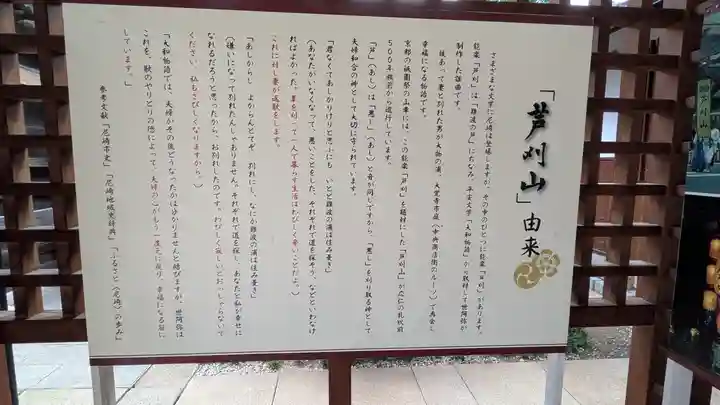 「芦刈山」由来
さまざまな文学に尼崎は登場しますが、その中のひとつに能楽「芦刈」があります。
能楽「芦刈」は「難波の芦」にちなみ、平安文学「大和物語」から取材して世阿弥が
制作した謡曲です。
故あって妻と別れた男が大物の浦、大覚寺市庭(中央商店街のルーツ)で再会し
幸福になる物語です。
京都の祇園祭の山車には、この能楽「芦刈」を題材にした「芦刈山」が応仁の乱以前
500年程前から巡行しています。
「芦」(あし)は「悪し」(あし)と音が同じですから、「悪し」を刈り取る神として
夫婦和合の神として大切に守られています。
「君なくてあしかりけりと思ふにも いとど難波の浦は住み憂き」
(あなたがいなくなって、悪いことをした、それぞれで道を探そう、などといわなけ
ればよかった。葦を刈って一人で暮らす生活はわびしく辛いことだよ。)
これに対し妻が返歌をします。
「あしからじ よからんとてぞ 別れにし なにか難波の浦は住み憂き」
(嫌いになって別れたんじゃありません。それぞれで道を探し、あなたと私が幸せに
なれるだろうと思ったから、お別れしたのです。わびしく寂しいとおっしゃらないで
ください。私もさびしくなりますから。)
「大和物語では、夫婦がその後どうなったかは分りませんと結びますが、世阿弥は
これを、歌のやりとりの徳によって、夫婦の心がもう一度元に戻り、幸福になる話に
しています。」
参考文献「尼崎市史」「尼崎地域史辞典」「ふるさと〈尼崎〉の歩み」
芦刈山